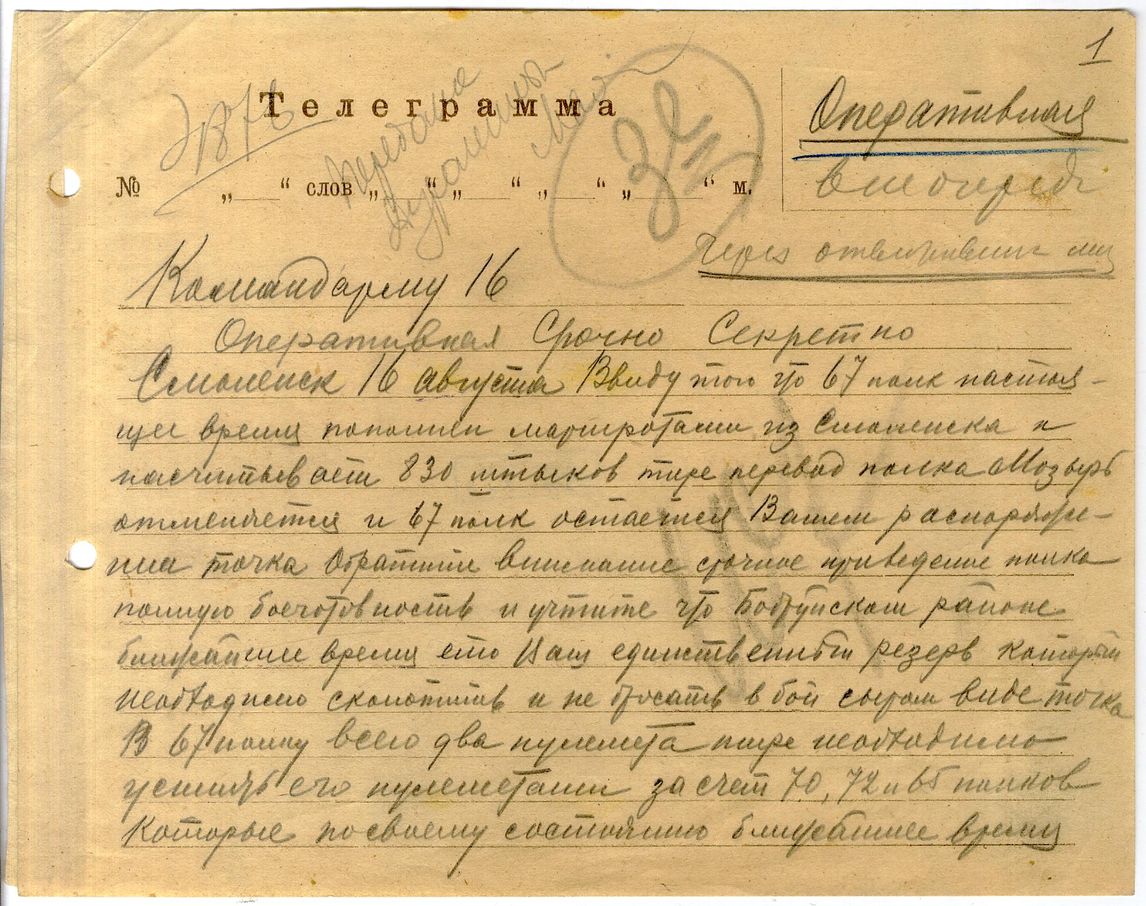 1
Телеграмма
Оперативная
вне очереди
№ „ “ слов „ “ „ “ „ “ „ “ м.
Через
Командарму 16
Оперативная Срочно Секретно
Смоленск 16 августа Ввиду того что 67 полк настоя-
щее время пополнен маршротами из Смоленска и
насчитывает 830 штыков тире перевод полка Мозырь
отменяется и 67 полк остается Вашем распоряже-
нии точка Обратите внимание срочное приведение полка
полную боеготовность и учтите что Бобруйском районе
ближайшее время его Ваш единственный резерв который
необходимо сколотить и не бросать в бой сыром виде точка
В 67 полку всего два пулемета тире необходимо
усилить его пулеметами за счет 70, 72 и 65 полков
которые по своему состоянию ближайшее время